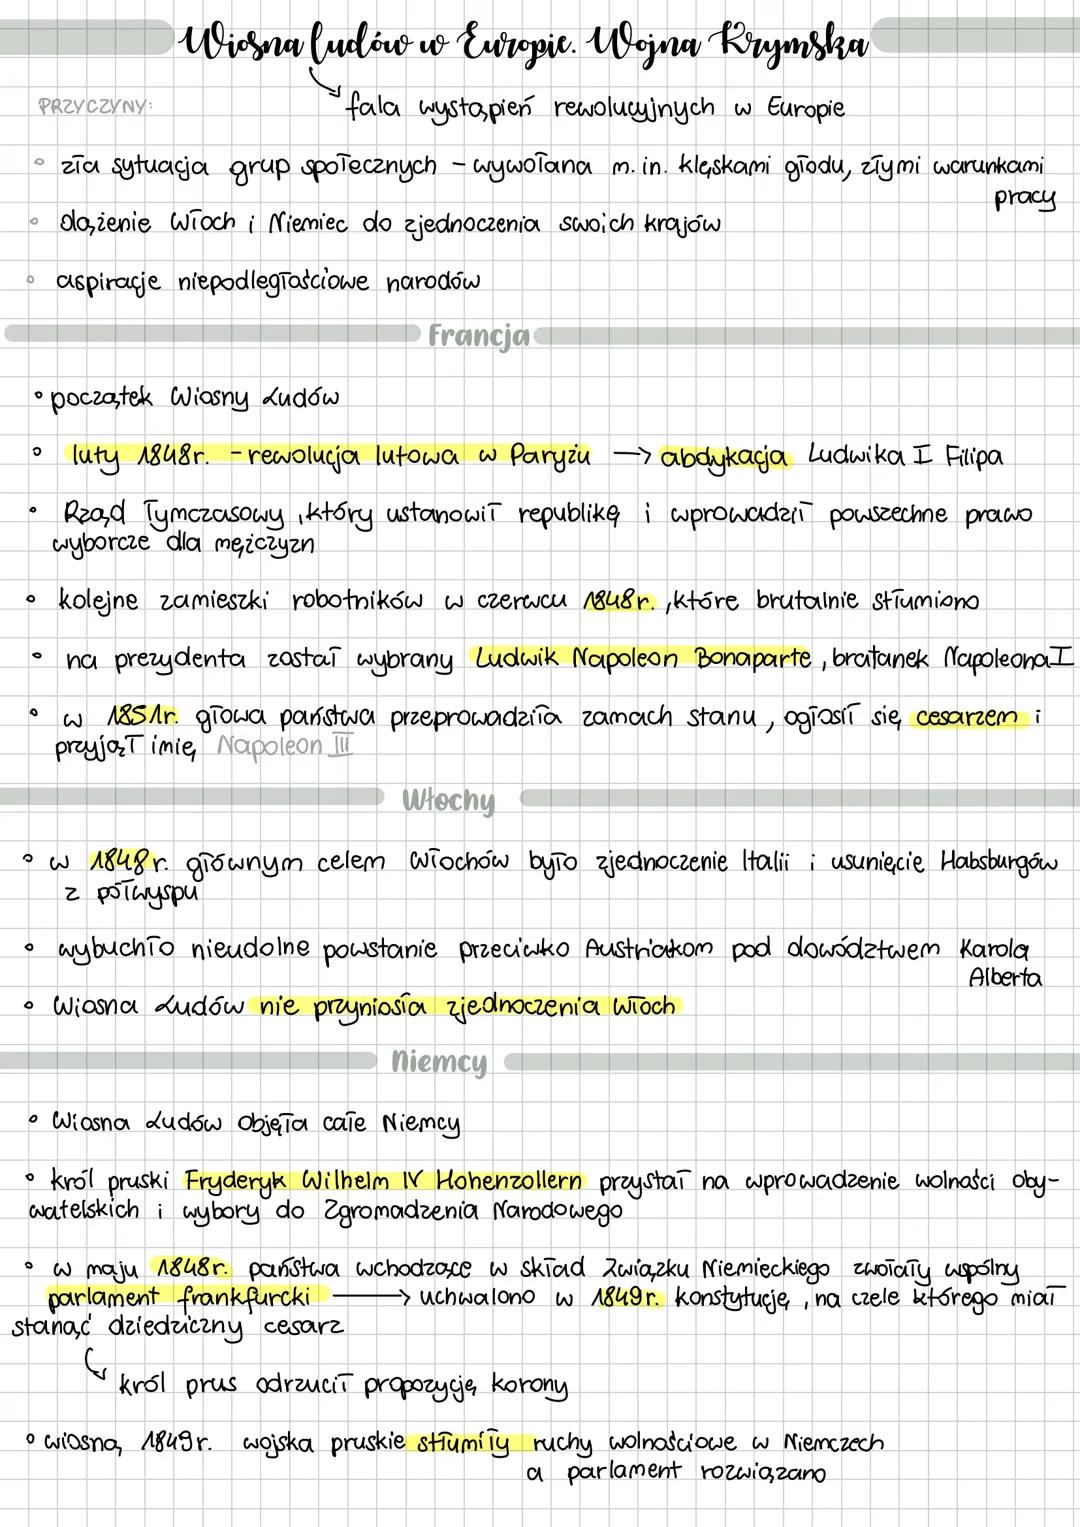 Wiosna Ludów w Europie. Wojna Krymska
PRZYCZYNY:
fala wystąpień rewolucyjnych w Europie
zła sytuacja grup społecznych - wywołana m. in. klęskami głodu, złymi warunkami
pracy
dążenie Włoch i Niemiec do zjednoczenia swoich krajów
aspiracje niepodległościowe narodów
Francja
początek Wiosny Ludów
luty 1848r. - rewolucja lutowa w Paryżu → abdykacja Ludwika I Filipa
Rząd Tymczasowy, który ustanowił republikę i wprowadził powszechne prawo
wyborcze dla mężczyzn
kolejne zamieszki robotników w czerwcu 1848r., które brutalnie stłumiono
na prezydenta został wybrany Ludwik Napoleon Bonaparte, bratanek Napoleona I
w 1851r. głowa państwa przeprowadziła zamach stanu, ogłosił się cesarzem i
przyjął imię Napoleon III
Włochy
w 1848r. głównym celem Włochów było zjednoczenie Italii i usunięcie Habsburgów
z półwyspu
wybuchło nieudolne powstanie przeciwko Austriakom pod dowództwem Karola
Alberta
Wiosna Ludów nie przyniosła zjednoczenia Włoch
Niemcy
Wiosna Ludów objęła całe Niemcy
król pruski Fryderyk Wilhelm IV Hohenzollern przystał na wprowadzenie wolności oby-
watelskich i wybory do Zgromadzenia Narodowego
w maju 1848r. państwa wchodzące w skład Związku Niemieckiego zwołały wspólny
parlament frankfurcki → uchwalono w 1849r. konstytucję, na czele którego miał
stanąć dziedziczny cesarz
król prus odrzucił propozycję korony
wiosną 1849r. wojska pruskie stłumiły ruchy wolnościowe w Niemczech
a parlament rozwiązano